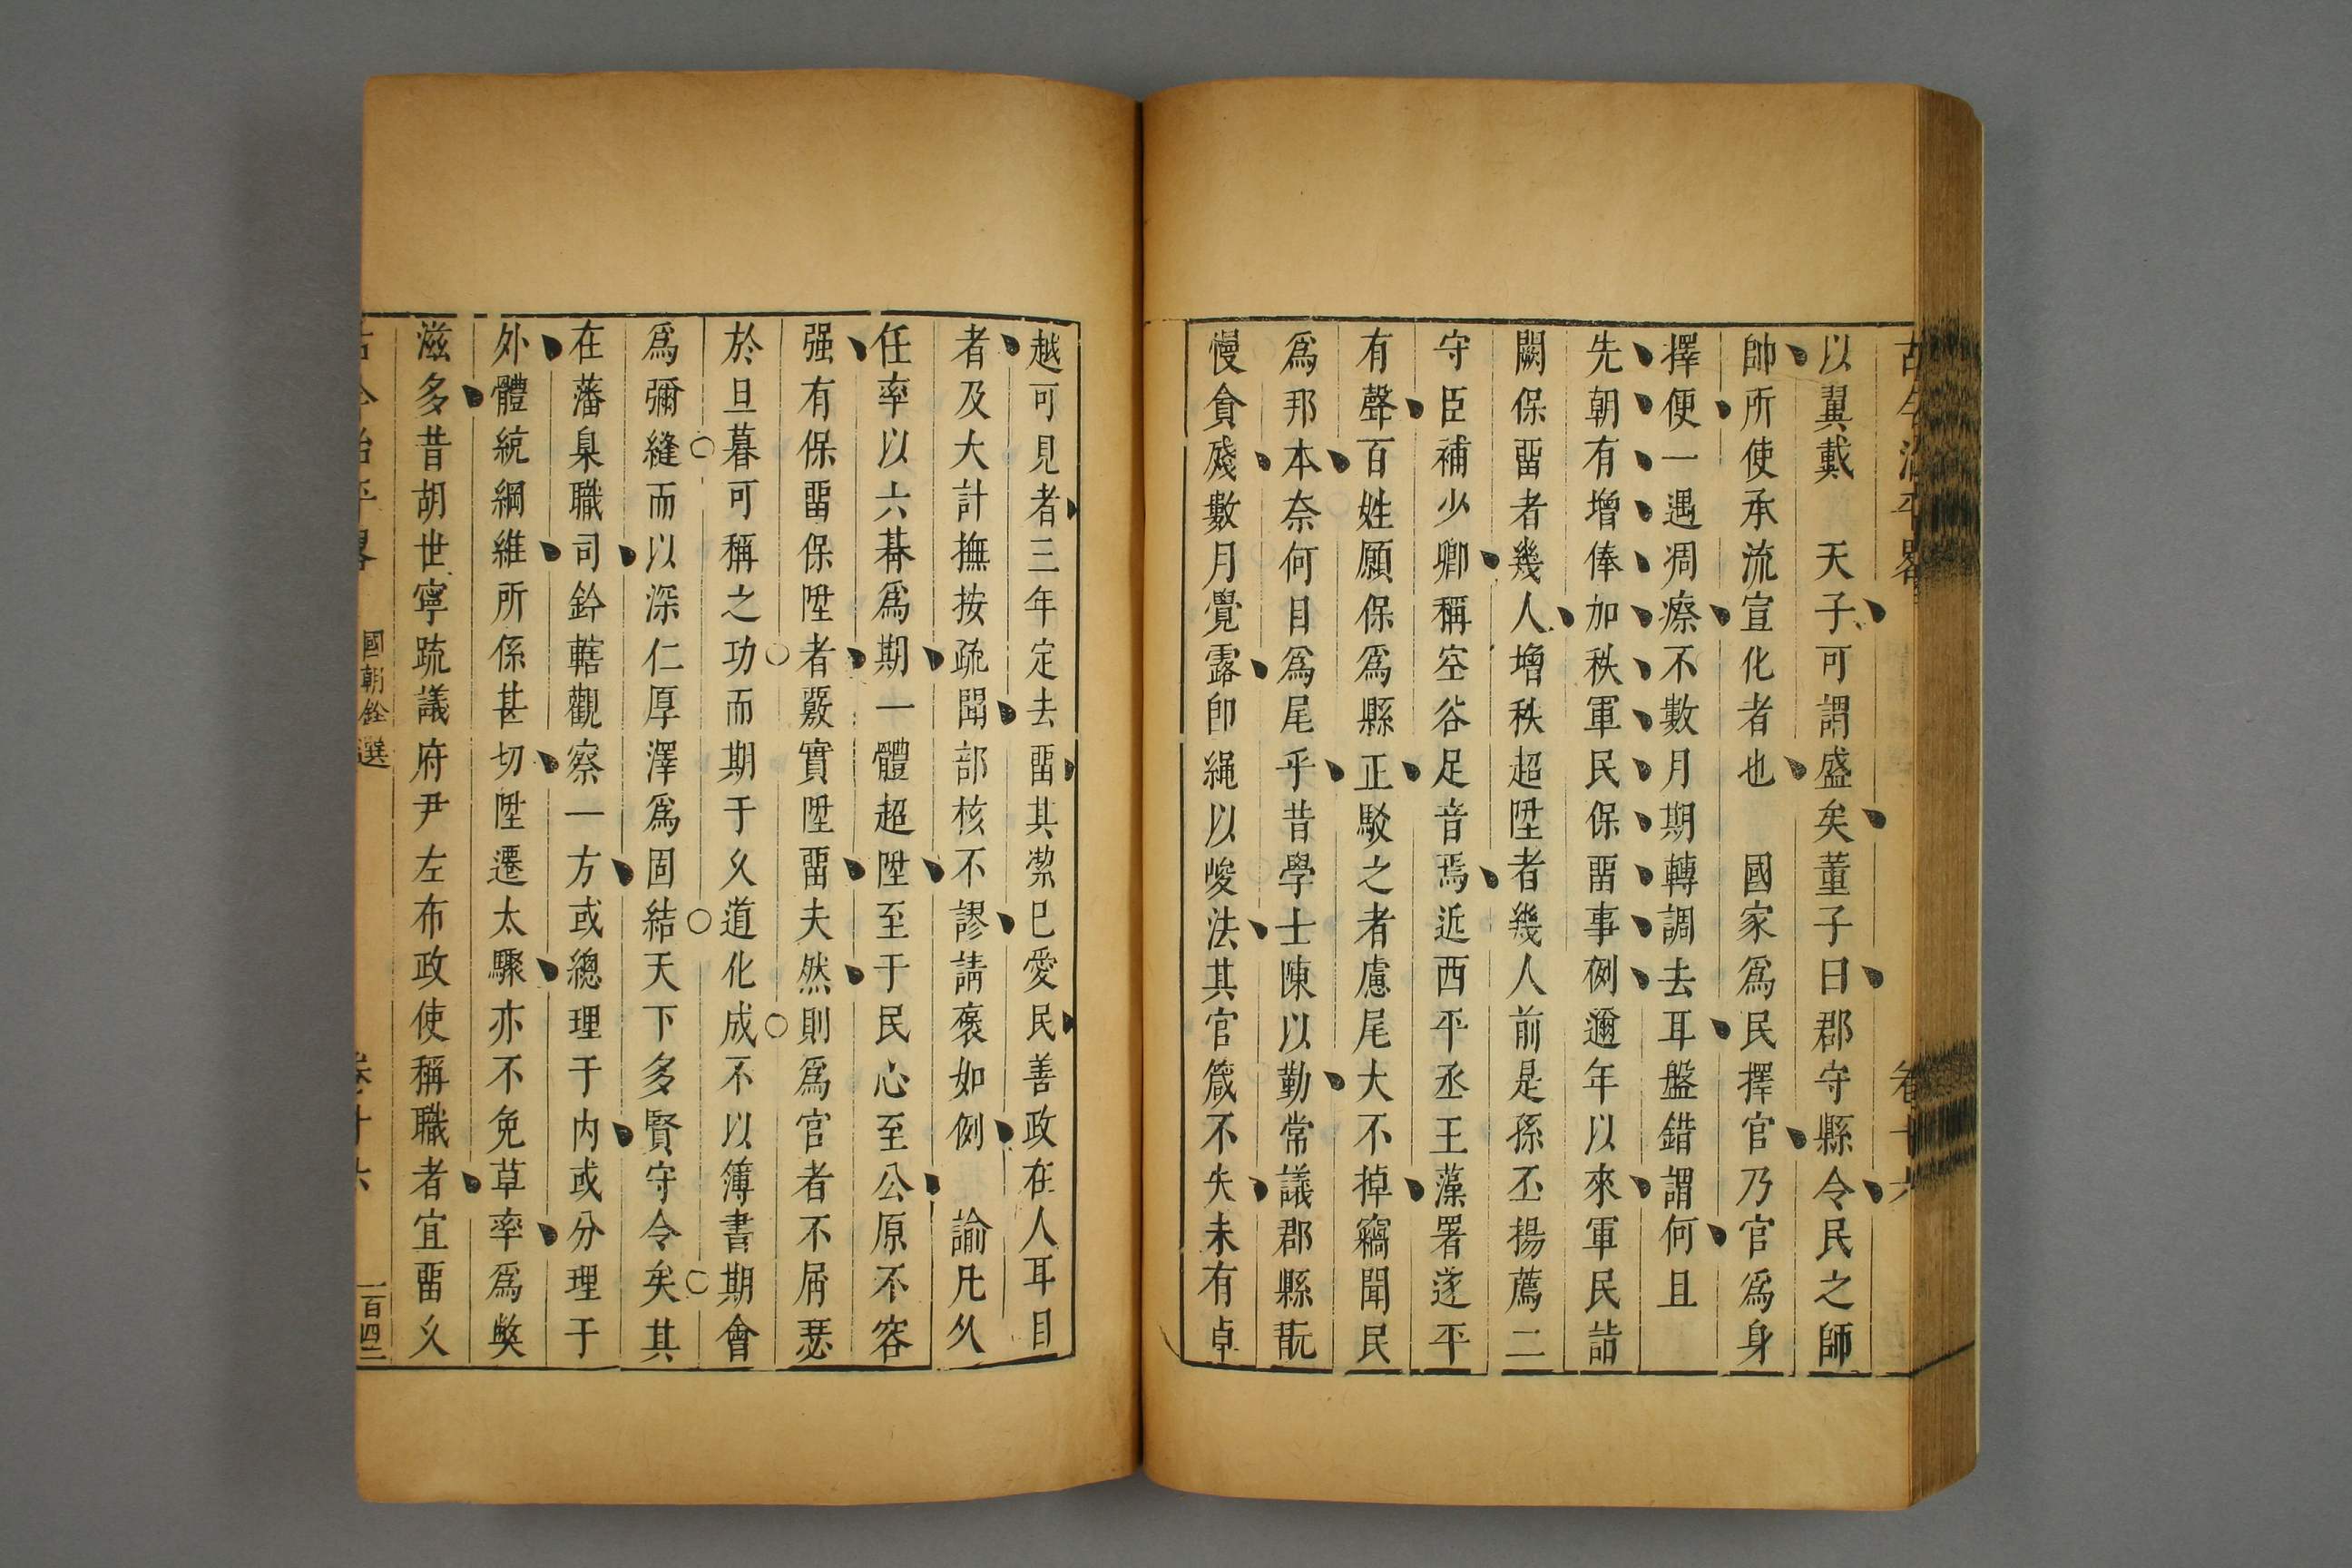 古今治平畧 卷十六
以翼戴 天子可謂盛矣董子曰郡守縣令民之師
帥所使承流宣化者也 國家爲民擇官乃官爲身
擇便一遇凋瘵不數月期轉調去耳盤錯謂何且
先朝有增俸加秩軍民保畱事例邇年以來軍民詣
闕保畱者幾人增秩超陞者幾人前是孫丕揚薦二
守臣補少卿稱空谷足音焉近西平丞王藻署遂平
有聲百姓願保爲縣正駁之者慮尾大不掉竊聞民
爲邦本奈何目爲尾乎昔學士陳以勤常議郡縣翫
慢貪殘數月覺露卽繩以峻法其官箴不失未有卓
越可見者三年定去畱其潔已愛民善政在人耳目
者及大計撫按疏聞部核不謬請褒如例 諭凡久
任率以六朞爲期一體超陞至于民心至公原不容
强有保畱保陞者覈實陞畱夫然則爲官者不屑瑟
於旦暮可稱之功而期于久道化成不以簿書期會
爲彌縫而以深仁厚澤爲固結天下多賢守令矣其
在藩臬職司鈐轄觀察一方或總理于内或分理于
外體統綱維所係甚切陞遷太驟亦不免草率爲獘
滋多昔胡世寧疏議府尹左布政使稱職者宜畱久
古今治平畧 國朝銓選 卷十六 一百四二